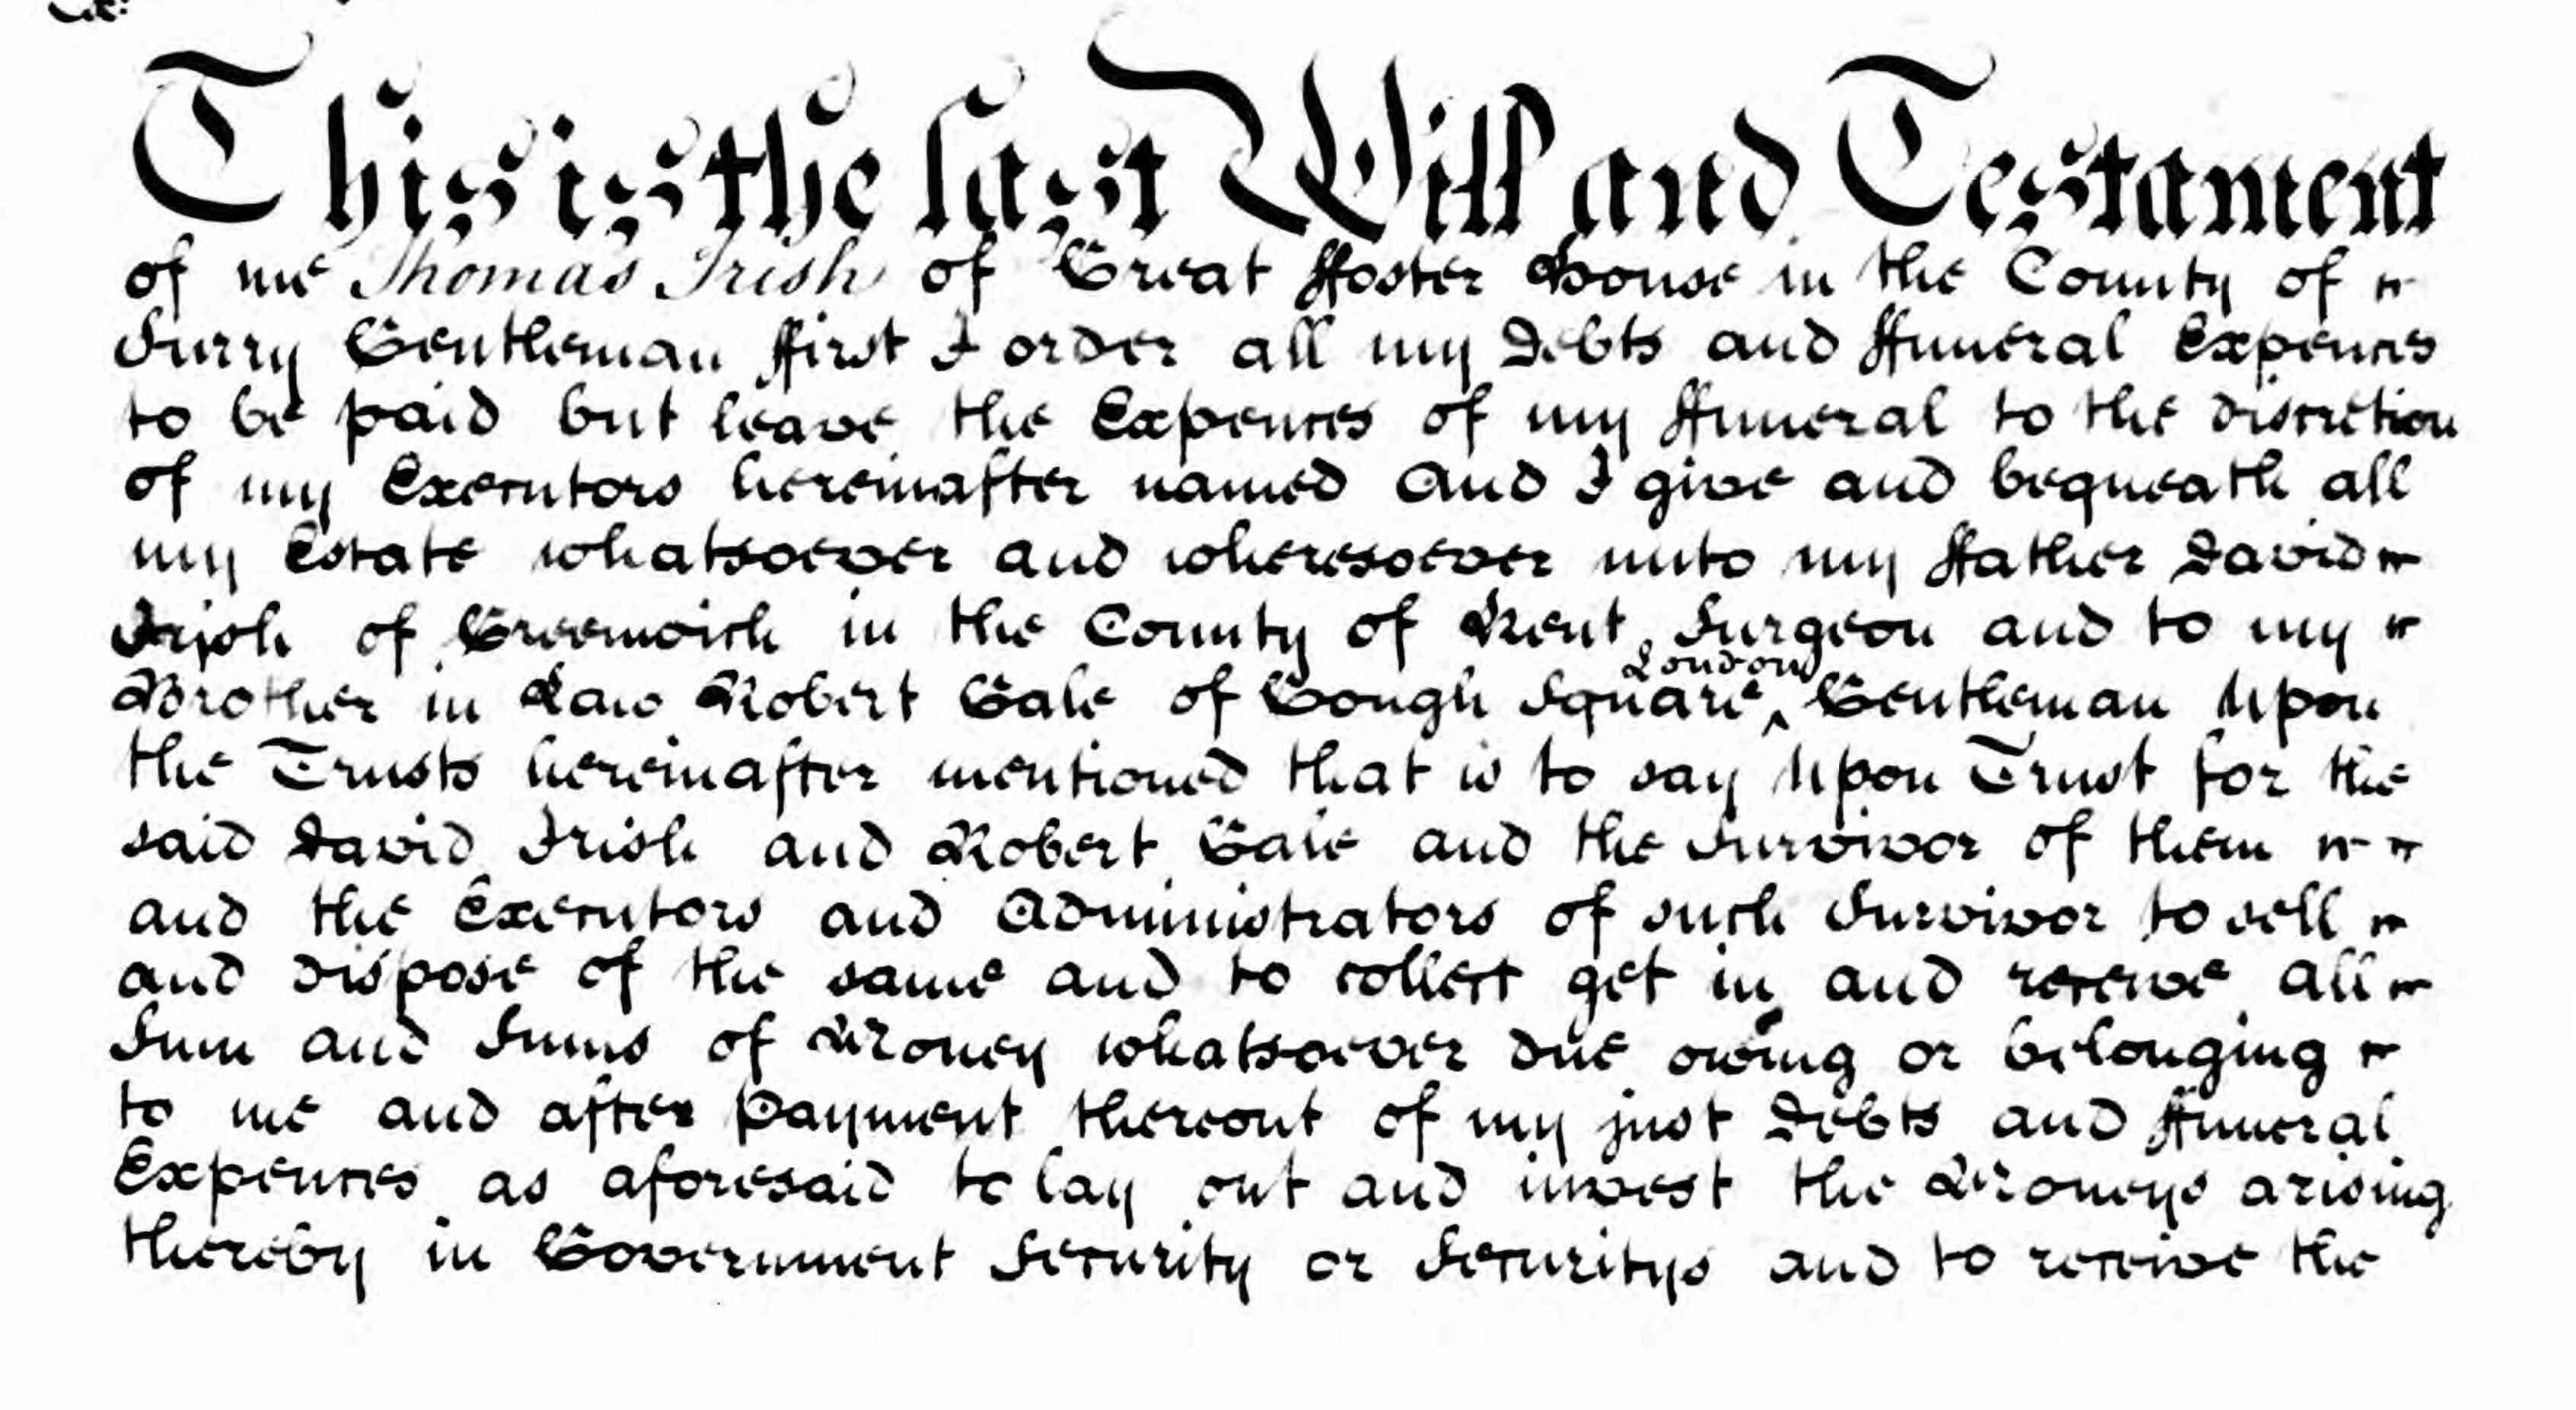 This is the last Will and Testament
of me Thomas Irish of Great ffoster House in the County of
Surry Gentleman ffirst I order all my Debts and ffuneral Expences
to be paid but leave the Expences of my ffuneral to the discretion
of my Executors hereinafter named And I give and bequeath all
my Estate whatsoever and wheresoever unto my ffather David
Irish of Greenwich in the County of Kent, Surgeon and to my
Brother in Law Robert Gale of Gough Square, ^London Gentleman Upon
the Trusts hereinafter mentioned that is to say Upon Trust for the
said David Irish and Robert Gale and the Survivor of them
and the Executors and Administrators of such Survivor to sell
and dispose of the same and to collect get in and receive all
Sum and Sums of Money whatsoever due owing or belonging
to me and after Payment thereout of my just Debts and ffuneral
Expences as aforesaid to lay out and invest the Moneys arising
thereby in Government Security or Securitys and to receive the